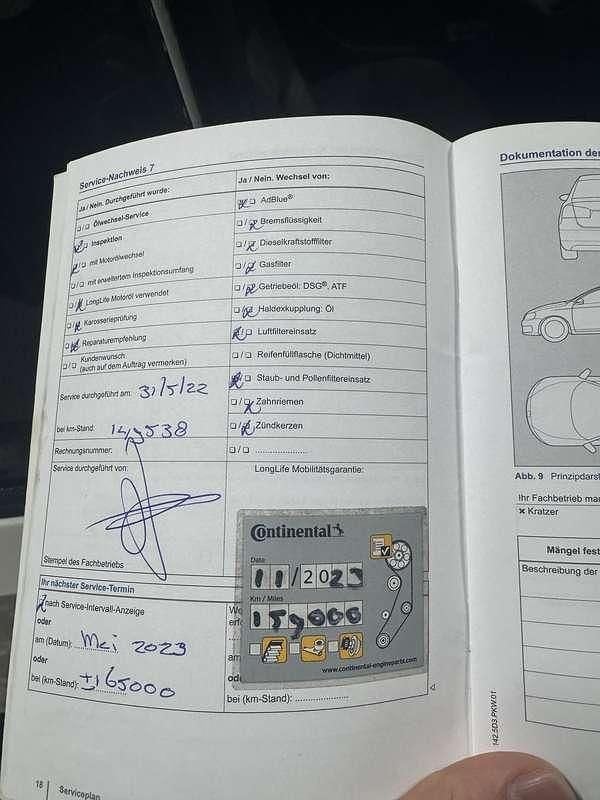 Service-Nachweis 7
Ja / Nein. Durchgeführt wurde:
Ölwechsel-Service
Inspektion
mit Motorölwechsel
mit erweitertem Inspektionsumfang
LongLife Motoröl verwendet
Karosserieprüfung
Reparaturempfehlung
Kundenwunsch
(auch auf dem Auftrag vermerken)
Service durchgeführt am: 31/5/22
bei km-Stand: 143538
Rechnungsnummer:
Service durchgeführt von:
Stempel des Fachbetriebs
Ja / Nein. Wechsel von:
AdBlue®
Bremsflüssigkeit
Dieselkraftstofffilter
Gasfilter
Getriebeöl: DSG®, ATF
Haldexkupplung: Öl
Luftfiltereinsatz
Reifenfüllflasche (Dichtmittel)
Staub- und Pollenfiltereinsatz
Zahnriemen
Zündkerzen
LongLife Mobilitätsgarantie:
Continental
Date
11/2023
Km / Miles
159000
www.continental-engineparts.com
Ihr nächster Service-Termin
nach Service-Intervall-Anzeige
oder
am (Datum): Mei 2023
oder
bei (km-Stand): ±165000
bei (km-Stand):
18 Serviceplan
Dokumentation der
Abb. 9 Prinzipdarst
Ihr Fachbetrieb ma
× Kratzer
Mängel fest
Beschreibung der
142.5D3.PKW.01